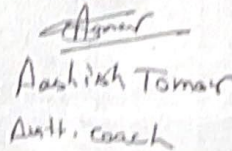 Aashish Tomar
Autt. coach